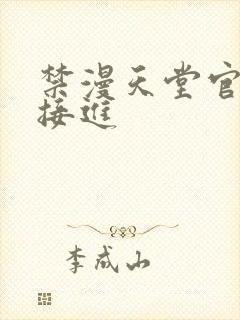 禁漫天堂官
接進
李成山